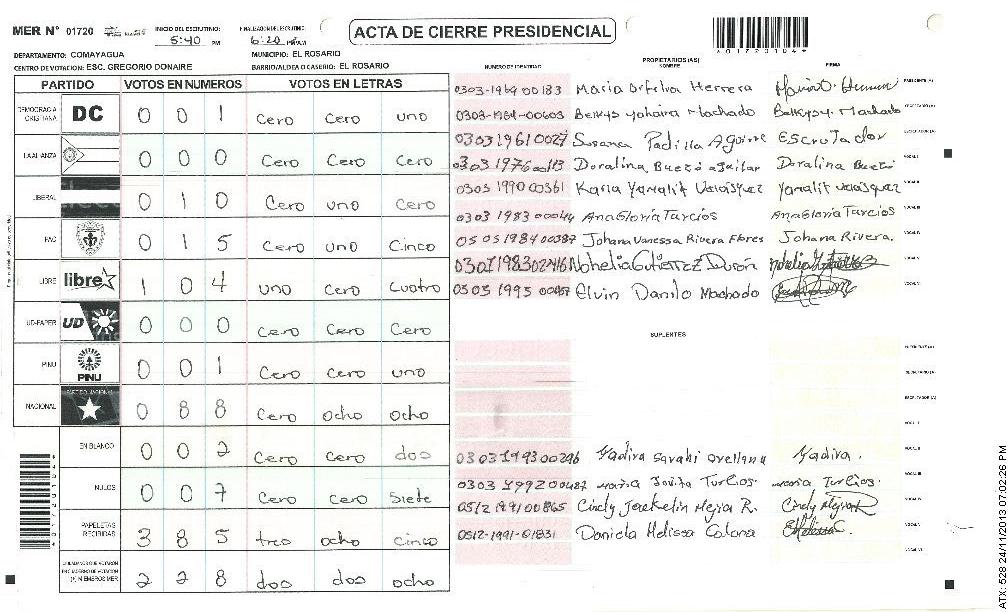 MER N° 01720
INICIO DEL ESCRUTINIO:
5:40 PM
FINALIZACION DEL ESCRUTINIO:
6:20 PM
ACTA DE CIERRE PRESIDENCIAL
DEPARTAMENTO: COMAYAGUA
MUNICIPIO: EL ROSARIO
CENTRO DE VOTACION: ESC. GREGORIO DONAIRE
BARRIO/ALDEA O CASERIO: EL ROSARIO
PARTIDO VOTOS EN NUMEROS VOTOS EN LETRAS
DEMOCRACIA CRISTIANA DC 0 0 1 cero cero uno
LA ALIANZA 0 0 0 Cero Cero Cero
LIBERAL 0 1 0 Cero uno cero
PAC 0 1 5 Cero uno Cinco
LIBRE libre 1 0 4 uno cero cuatro
UD-FAPER UD 0 0 0 Cero Cero Cero
PINU PINU 0 0 1 Cero cero uno
NACIONAL PARTIDO NACIONAL 0 8 8 Cero ocho ocho
EN BLANCO 0 0 2 Cero Cero dos
NULOS 0 0 7 Cero cero Siete
PAPELETAS RECIBIDAS 3 8 5 tres ocho cinco
CIUDADANOS QUE VOTARON EN CUADERNO DE VOTACION (+) MIEMBROS MER 2 2 8 dos dos ocho
PROPIETARIOS (AS)
NUMERO DE IDENTIDAD NOMBRE FIRMA
0303-1969 00183 Maria Herrera
0303-1984-00603 Belkys Yohaira Machado Belkys Y. Machado
0303 1961 0027 Susana Padilla Aguirre Escrutador
0303 1976 Doralina Bueso aguilar Doralina Bueso
0303 1990 00361 Karla Yamalit Velasquez Yamalit Velasquez
0303 1983 00044 Ana Gloria Turcios Ana Gloria Turcios
0505 1984 00387 Johana Vanessa Rivera Flores Johana Rivera.
Nohelia Gutierrez Durón
0303 1995 Elvin Danilo Machado
SUPLENTES
0303 1993 00296 Yadira Sarahi Orellana Yadira.
0303 1992 00487 Maria Jovita Turcios. Maria Turcios.
0512 1991 00865 Cindy Jackelin Mejia R. Cindy Mejia R
0512-1991-01831 Daniela Melissa Calona
ATX: 528 24/11/2013 07:02:26 PM